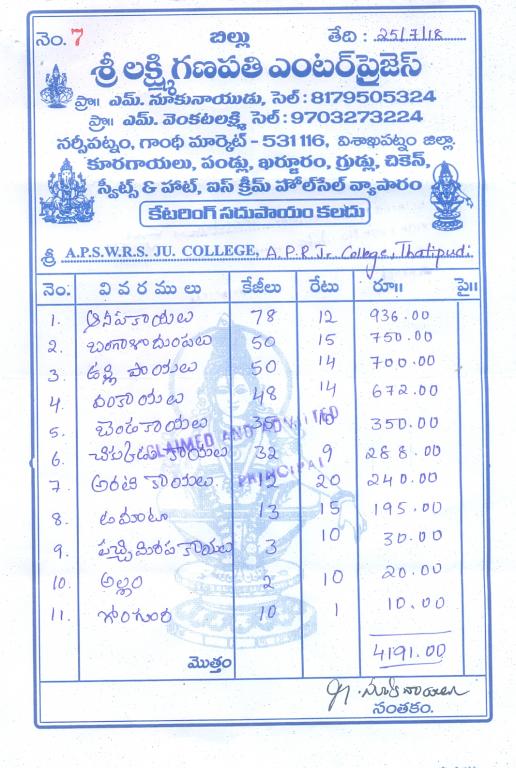 నెం. 7 బిల్లు తేది : 25/7/18
శ్రీ లక్ష్మి గణపతి ఎంటర్‌ప్రైజెస్
ప్రొ॥ ఎమ్. నూకునాయుడు, సెల్ : 8179505324
ప్రొ॥ ఎమ్. వెంకటలక్ష్మి, సెల్ : 9703273224
నర్సీపట్నం, గాంధీ మార్కెట్ - 531 116, విశాఖపట్నం జిల్లా
కూరగాయలు, పండ్లు, ఖర్జూరం, గ్రుడ్లు, చికెన్,
స్వీట్స్ & హాట్, ఐస్ క్రీమ్ హోల్‌సేల్ వ్యాపారం
కేటరింగ్ సదుపాయం కలదు
శ్రీ A.P.S.W.R.S. JU. COLLEGE, A.P.R.Jr. College, Thatipudi
నెం. వివరములు కేజీలు రేటు రూ॥ పై॥
1. ఆనపకాయలు 78 12 936.00
2. బంగాళాదుంపలు 50 15 750.00
3. ఉల్లి పాయలు 50 14 700.00
4. వంకాయలు 48 14 672.00
5. బెండకాయలు 35 10 350.00
6. చిక్కుడు కాయలు 32 9 288.00
7. అరటి కాయలు 12 20 240.00
8. టమాటా 13 15 195.00
9. పచ్చిమిరప కాయలు 3 10 30.00
10. అల్లం 2 10 20.00
11. గోంగూర 10 1 10.00
CLAIMED AND ADMITTED
PRINCIPAL
మొత్తం 4191.00
సంతకం.